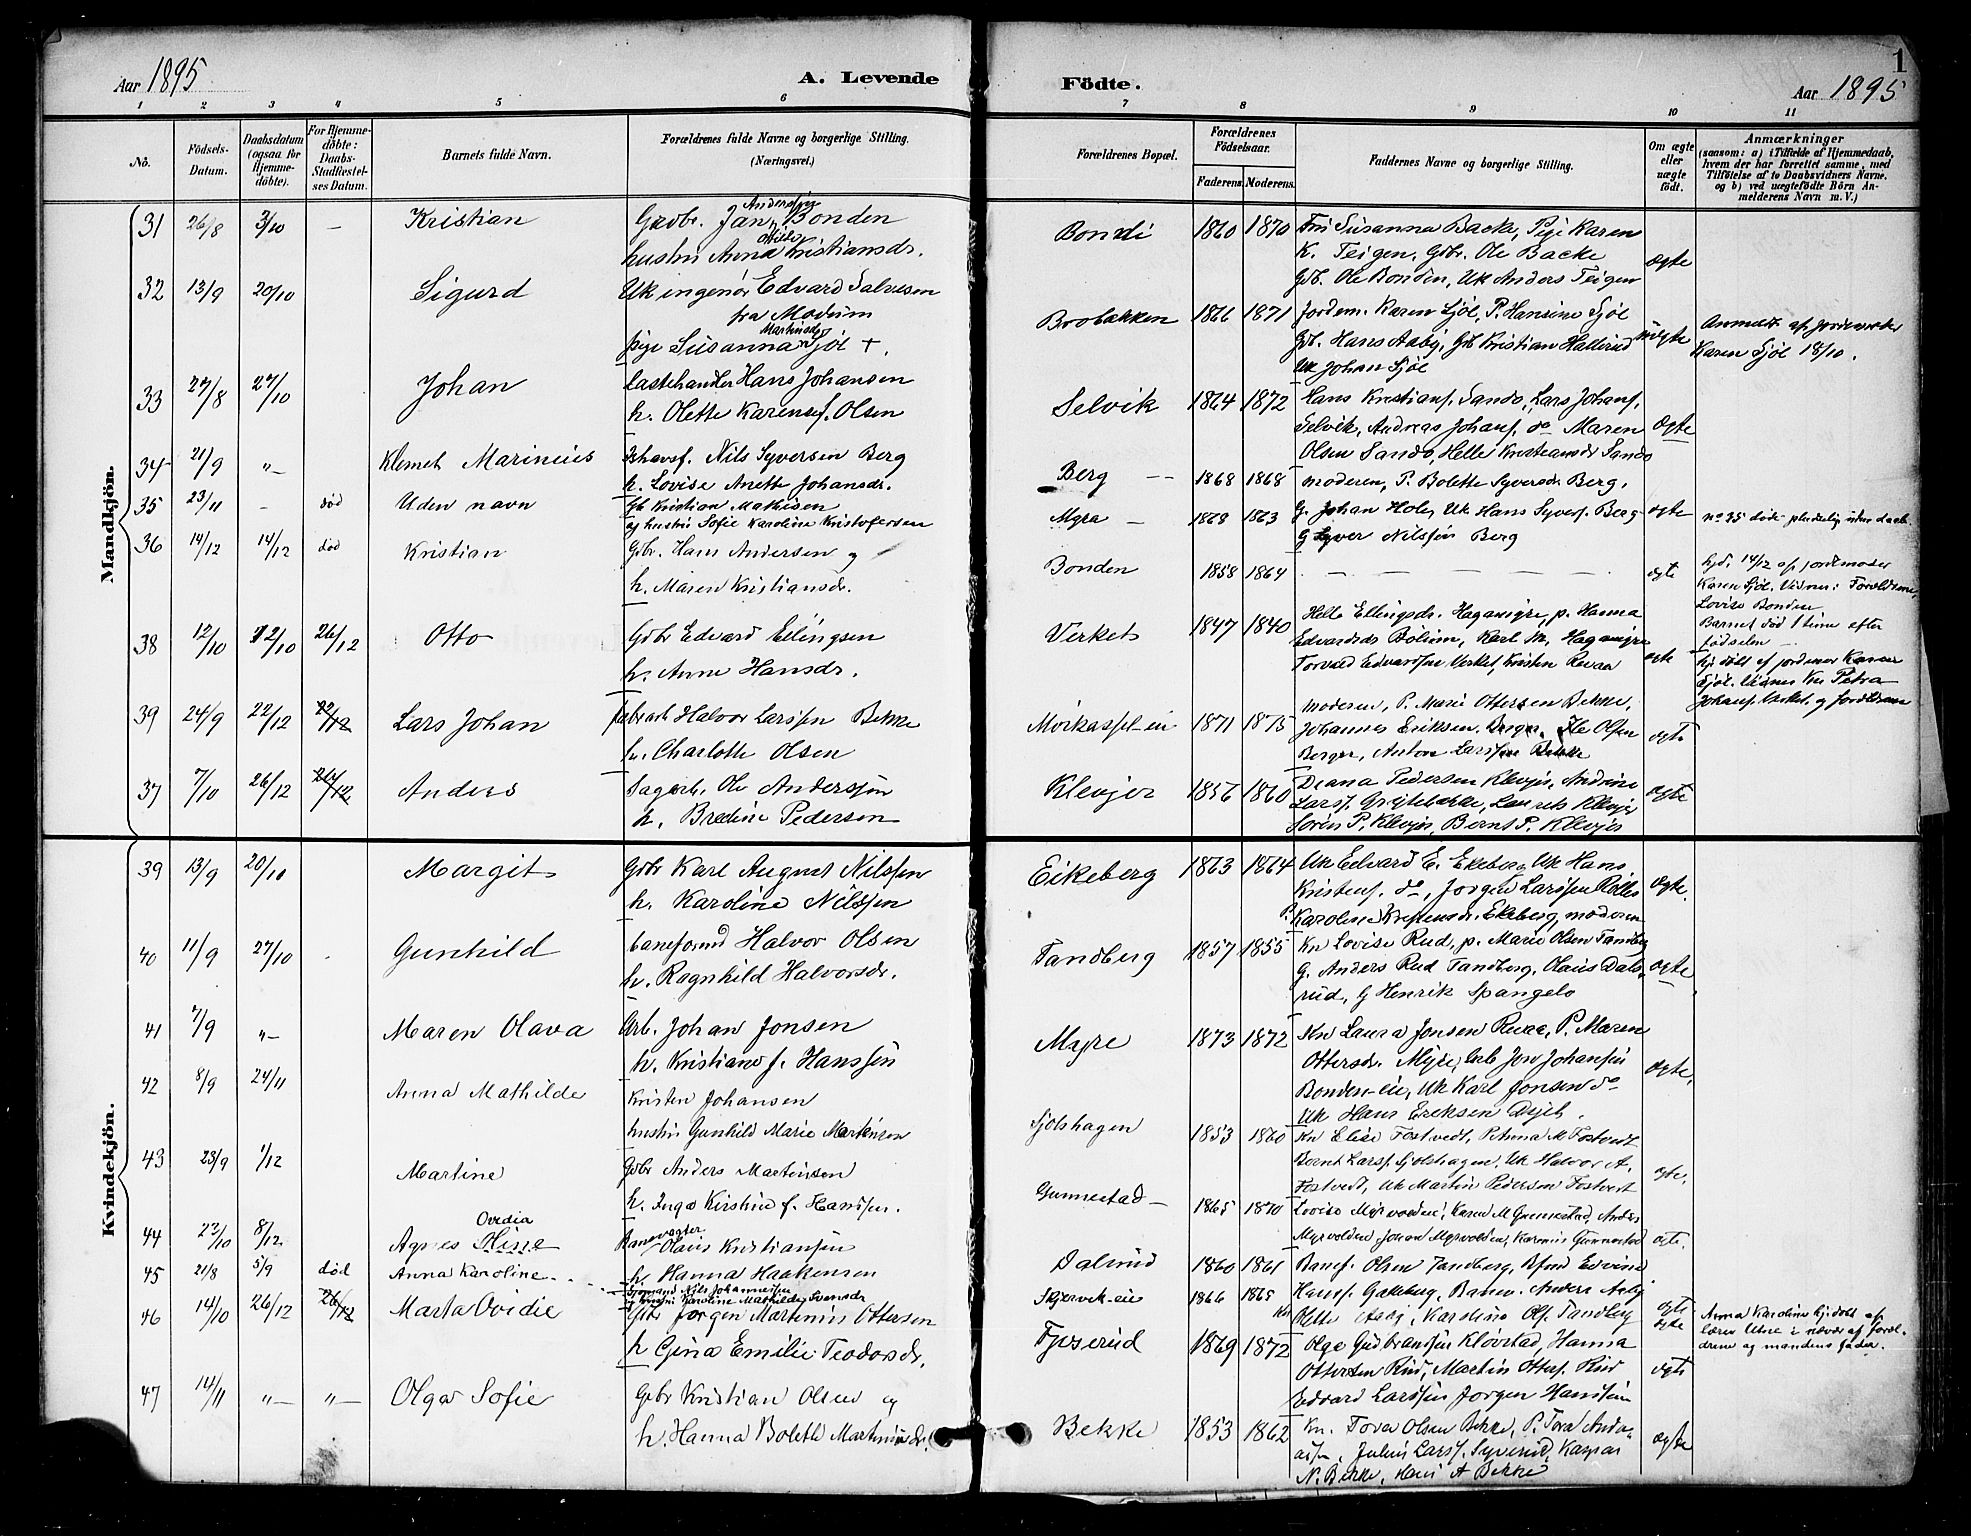 Aar 1895 A. Levende Födte. Aar 1895 1
1 2 3 4 5 6 7 8 9 10 11
Nö. Födsels-Datum. Daabsdatum (ogsaa for Hjemme-döbte). For Hjemme-döbte: Daabs-Stadfæstel-ses Datum. Barnets fulde Navn. Forældrenes fulde Navne og borgerlige Stilling. (Næringsvei.) Forældrenes Bopæl. Forældrenes Födselsaar. Faderens. Moderens. Faddernes Navne og borgerlige Stilling. Om ægte eller uægte födt. Anmærkninger (saasom: a) i Tilfælde af Hjemmedaab, hvem der har forrettet samme, med Tilföielse af to Daabsvidners Navne. og b) ved uægtefödte Börn An-melderens Navn m. V.)
Mandkjön.
31 26/8 3/10 — Kristian Gaardbr. Jan Bonden
hustru Anna Kristiansdr.
Bonde 1860 1870 Susanna Backe, Pige Karen
K. Teigen, Gdbr. Ole Backe
Ole Bonden, Uk Anders Teigen
ægte
32 13/9 20/10 Sigurd Uk ingenör Edvard Salvesen
fra Modum
pige Susanna Martinsdr Sjöl +.
Brobakken 1866 1871 Jordem. Karen Sjöl, P. Hansine Sjöl
Hans Aaby, Gb Kristian Hallerud
Uk Johan Sjöl
uægte
Anmeldt af jordemoder
Karen Sjöl 18/10.
33 27/8 27/10 Johan Hans Johansen
h. Olette Karensf. Olsen
Selvik 1864 1872 Hans Kristians. Sando, Lars Johans.
Selvik, Andreas Johans. do Maren
Olsen Sando, Helle Kristiansdr Sando
ægte
34 21/9 „— Klemet Marinius Nils Syversen Berg
h. Lovise Anette Johansdr.
Berg — 1868 1868 moderen, P. Bolette Syversdr. Berg,
G. Johan Holey, Uk Hans Syvers. Berg
G Syver Nilssön Berg
ægte
35 23/11 - död Uden navn Gb Kristian Mathisen
og hustru Sofie Karoline Kristofersen
Myra — 1868 1863
no 35 döde pludselig uden daab
36 14/12 14/12 död Kristian Gdbr. Hans Andersen og
h. Maren Kristiansdr.
Bonden 1858 1864 — — — — —
ægte
hjd. 14/12 af jordemoder
Karen Sjöl. Vidner: Forældrene,
Lovise Bonden
Barnet död 1 time efter
födselen
38 12/10 12/10 26/12 Otto Gdbr Edvard Ellingsen
h. Anne Hansdr.
Verket 1847 1840 Helle Ellingsdr. Hagamyre, p. Hanna
Edvardsds Bölum, Karl M. Hagamyre
Torvald Edvardssen Verket, Kristen Revaa
ægte
hj. döbt af jordemor Karen
Sjöl. Vidner Kn Petra
Johans. Verket, og forældrene
39 24/9 22/12 22/12 Lars Johan Halvor Larssen Bekke
h. Charlotte Olsen
1871 1875 moderen, P. Marie Ottersen Bekke,
Johannes Eriksen Berger, Ole Olsen
Berger, Anton Larssen Bekke
ægte
37 7/10 26/12 26/12 Anders Sagarb. Ole Anderssön
h. Bredine Pedersen
Klevjer 1856 1860 Diana Pedersen Klevjer, Andrine
Larss. Gröjtebække, Laurits Klevjer
Sören P. Klevjer, Bernt P. Klevjer
ægte
Kvindekjön.
39 13/9 20/10 Margit Gdbr Karl August Nilssen
h. Karoline Nilssen
Eikeberg 1863 1864 Uk Edvard E. Ekeberg, Uk Hans
Kristens. do, Jorgen Larssen
P. Karoline Ekeberg, moderen
ægte.
40 11/9 27/10 . Gunhild baneformd Halvor Olsen
h. Ragnhild Halvorsdr.
Tandberg 1857 1855 Kn Lovise Rud, p. Marie Olsen Tandberg
G. Anders Rud Tandberg, Olaus Dals-
rud, G Henrik Spangelo
ægte
41 7/9 „— Maren Olava Arb. Johan Jonsen
h. Kristiane f. Hanssen
Myre 1873 1872 Kn Laura Jonsen Revaa, P. Maren
Ottersdr. Myre, arb Jon Johansen
Bonden-eie, Uk Karl Jonsen do
Uk Hans Eriksen
ægte.
42 8/9 24/11 Anna Mathilde Kristen Johansen
hustru Gunhild Marie Martinsen
Sjölshagen 1853 1860 Kn Elise Fostvedt, P. Anna M Fostvedt
Bernt Larss. Sjölshagen, Uk Halvor A.
Fostvedt, Uk Martin Pedersen Fostvedt
ægte.
43 23/9 1/12 Martine Gdbr Anders Martinsen
h. Inga Kirstine f. Hanssen.
Gunnestad — 1865 1870 Lovise Myrvolden, Karen M Gunnestad, Anders
Myrvolden, Johan Myrvolden, Gunnestad
ægte.
44 23/10 8/12 Agnes Ovedia Banevogter Olaus Kristiansen
h. Hanna Haakensen
Dalsrud 1860 1861 Banef. Olsen Tandberg,
45 21/8 5/9 död Anna Karoline Nils Johannessen
og hustru Karoline Mathilde Svensdr
Skjervik-eie 1866 1865
ægte
Anna Karoline hj. döbt af
lærer Utne i nærvær af foræl-
drene og mandens fader.
46 14/10 26/12 26/12 Marta Ovidie Gdbr Jörgen Martinius Ottersen
h Gina Emilie Teodosdr.
Fjeserud 1869 1872 Olga Gudbrandsen Klövstad, Hanna
Ottersen Rud, Martin Otters. Rud
Edvard Larssen, Jörgen Hanssen
ægte
47 14/11 „— „— Olga Sofie Gdbr Kristian Olsen og
h. Hanna Bolette Martinsdr.
Bekke 1853 1862 Kn. Tova Olsen Bekke, P. Tora
Julius Larss. Syverud, Kaspar
N. Bekke, Hans A Bekke
ægte